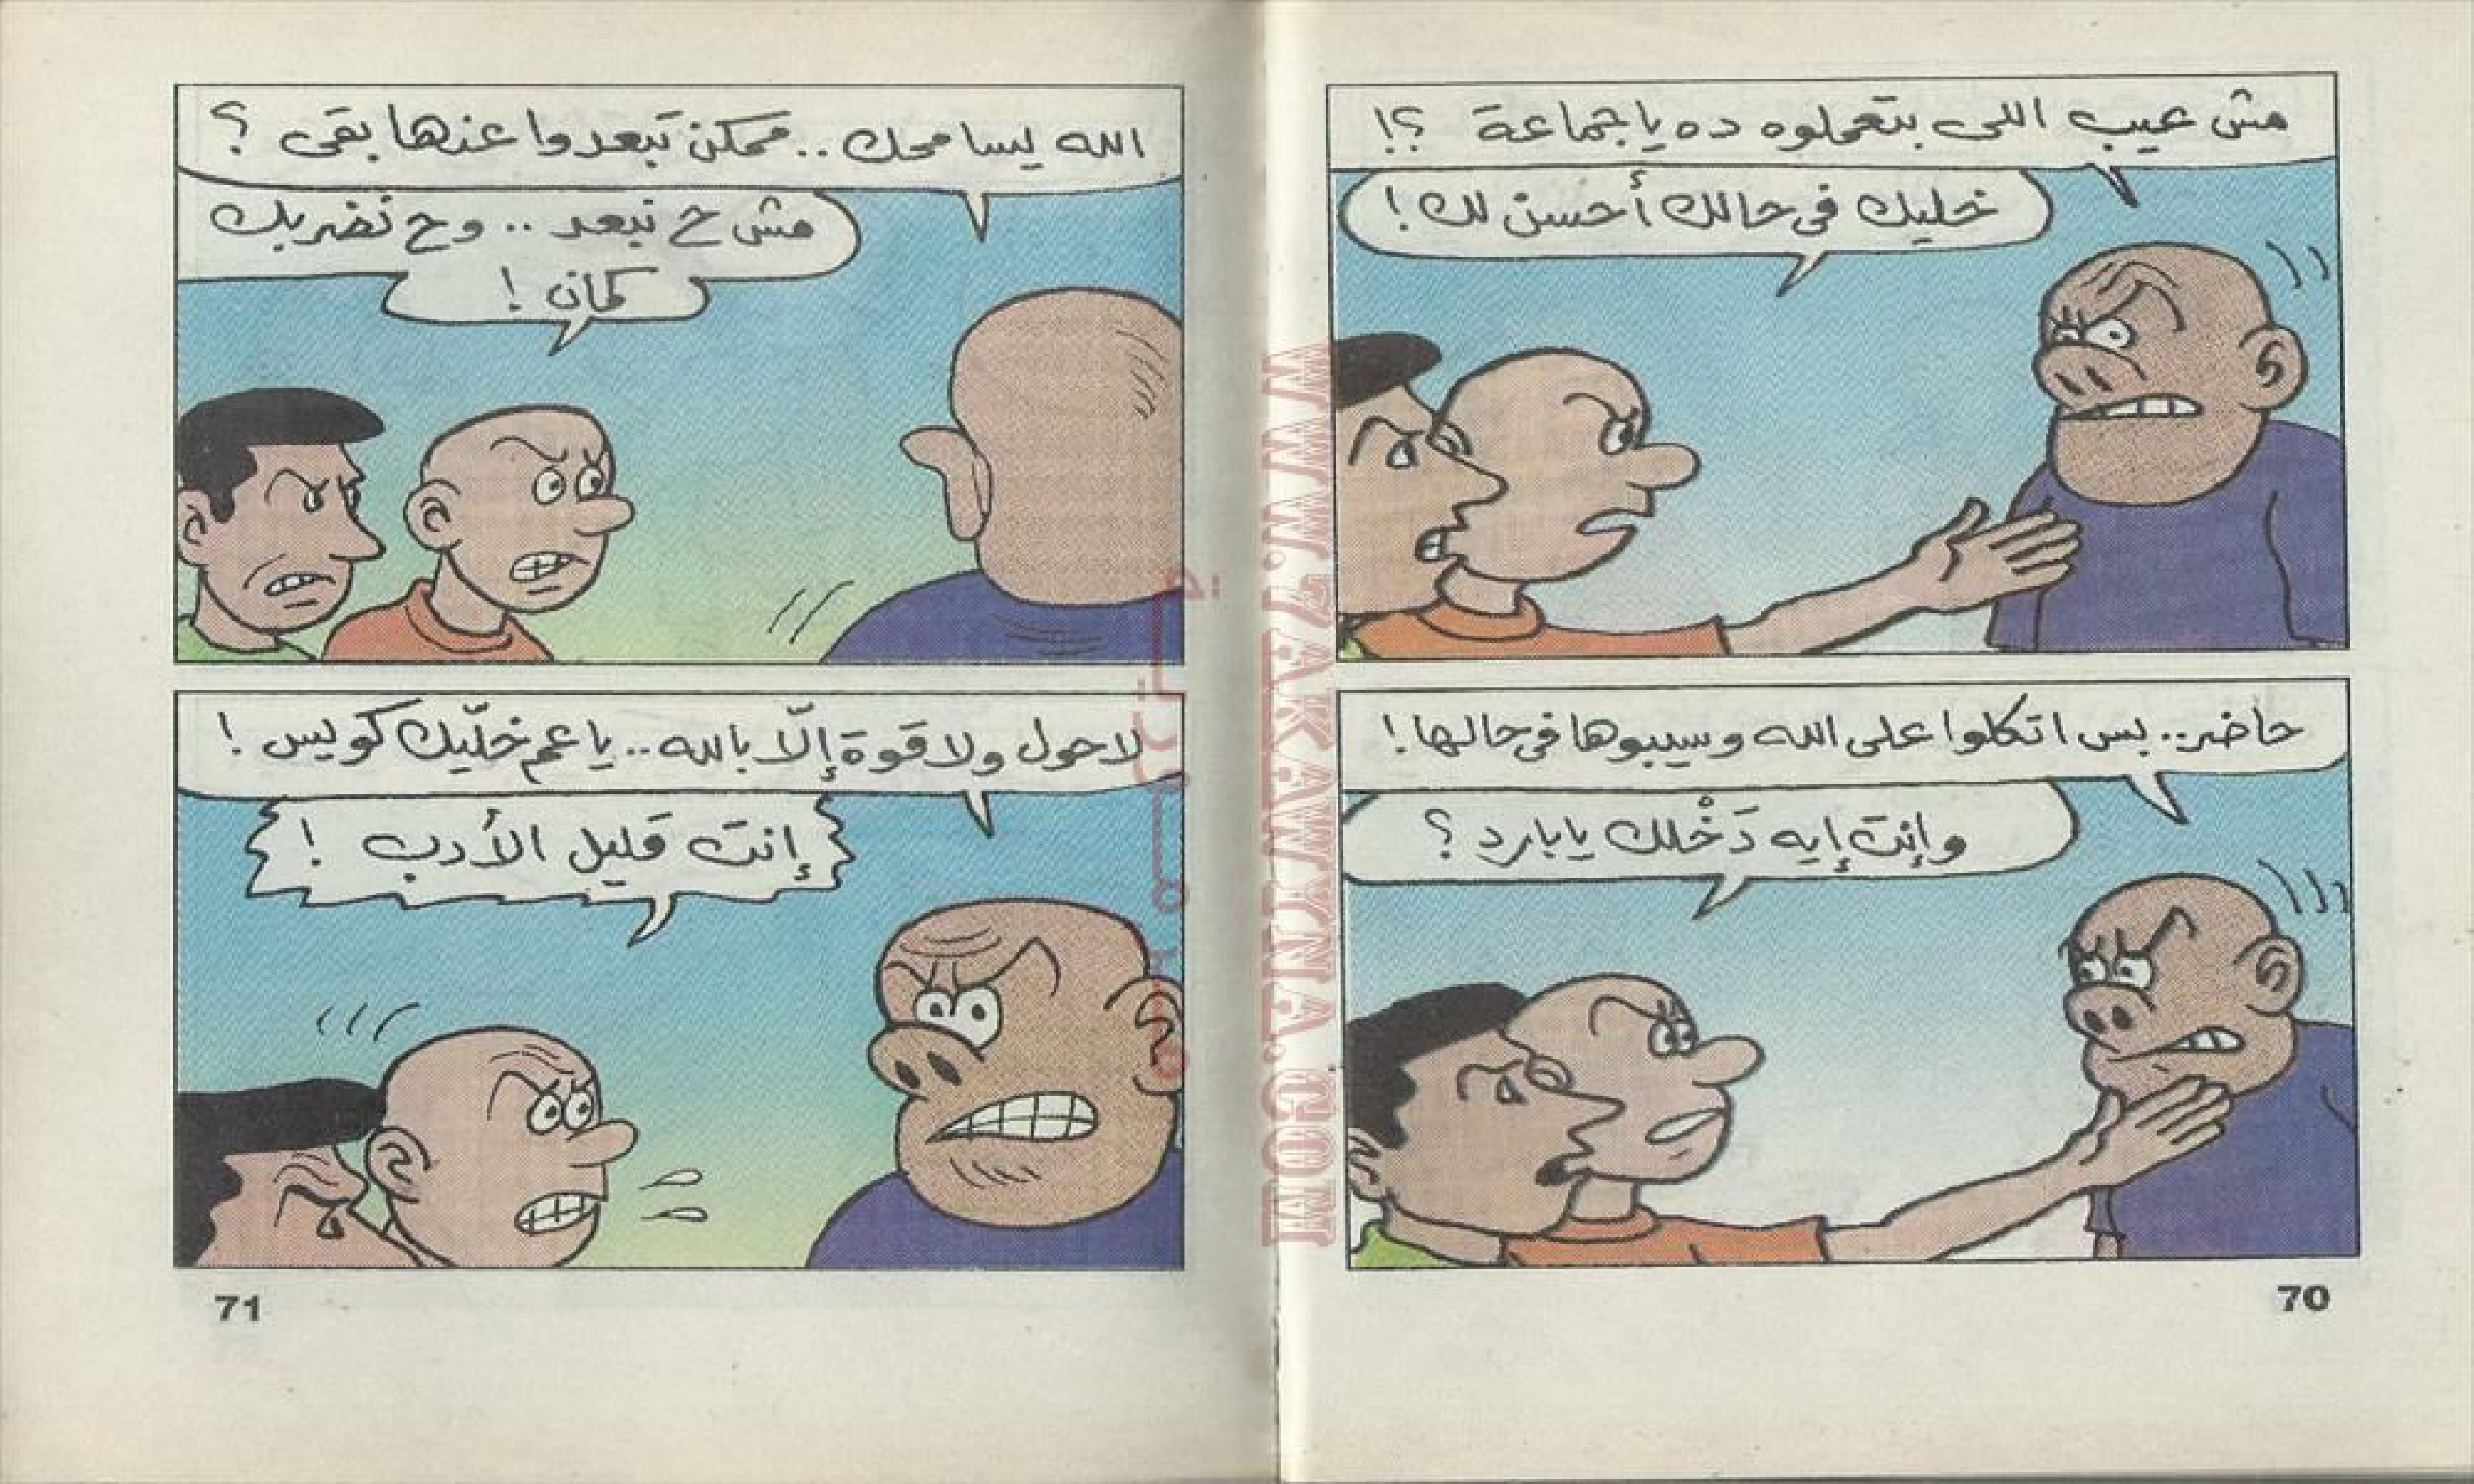 مش عيب اللى بتعملوه ده يا جماعة ؟!
خليك فى حالك أحسن لك !
حاضر.. بس اتكلوا على الله وسيبوها فى حالها !
وإنت إيه دَخْلك يا بارد ؟
70
الله يسامحك .. ممكن تبعدوا عنها بقى ؟
مش ح نبعد .. وح نضربك
كمان !
لا حول ولا قوة إلّا بالله .. يا عم خلّيك كويس !
إنت قليل الأدب !
71
WWW.ZAKAWYNA.COM